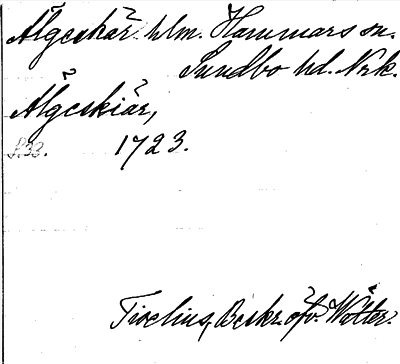 Älgeskär hlm. Hammars sn.
Sundbo hd. Nrk.
Älgeskiär,
S.33. 1723.
Tiselius, Beskr. öfv. Wätter.